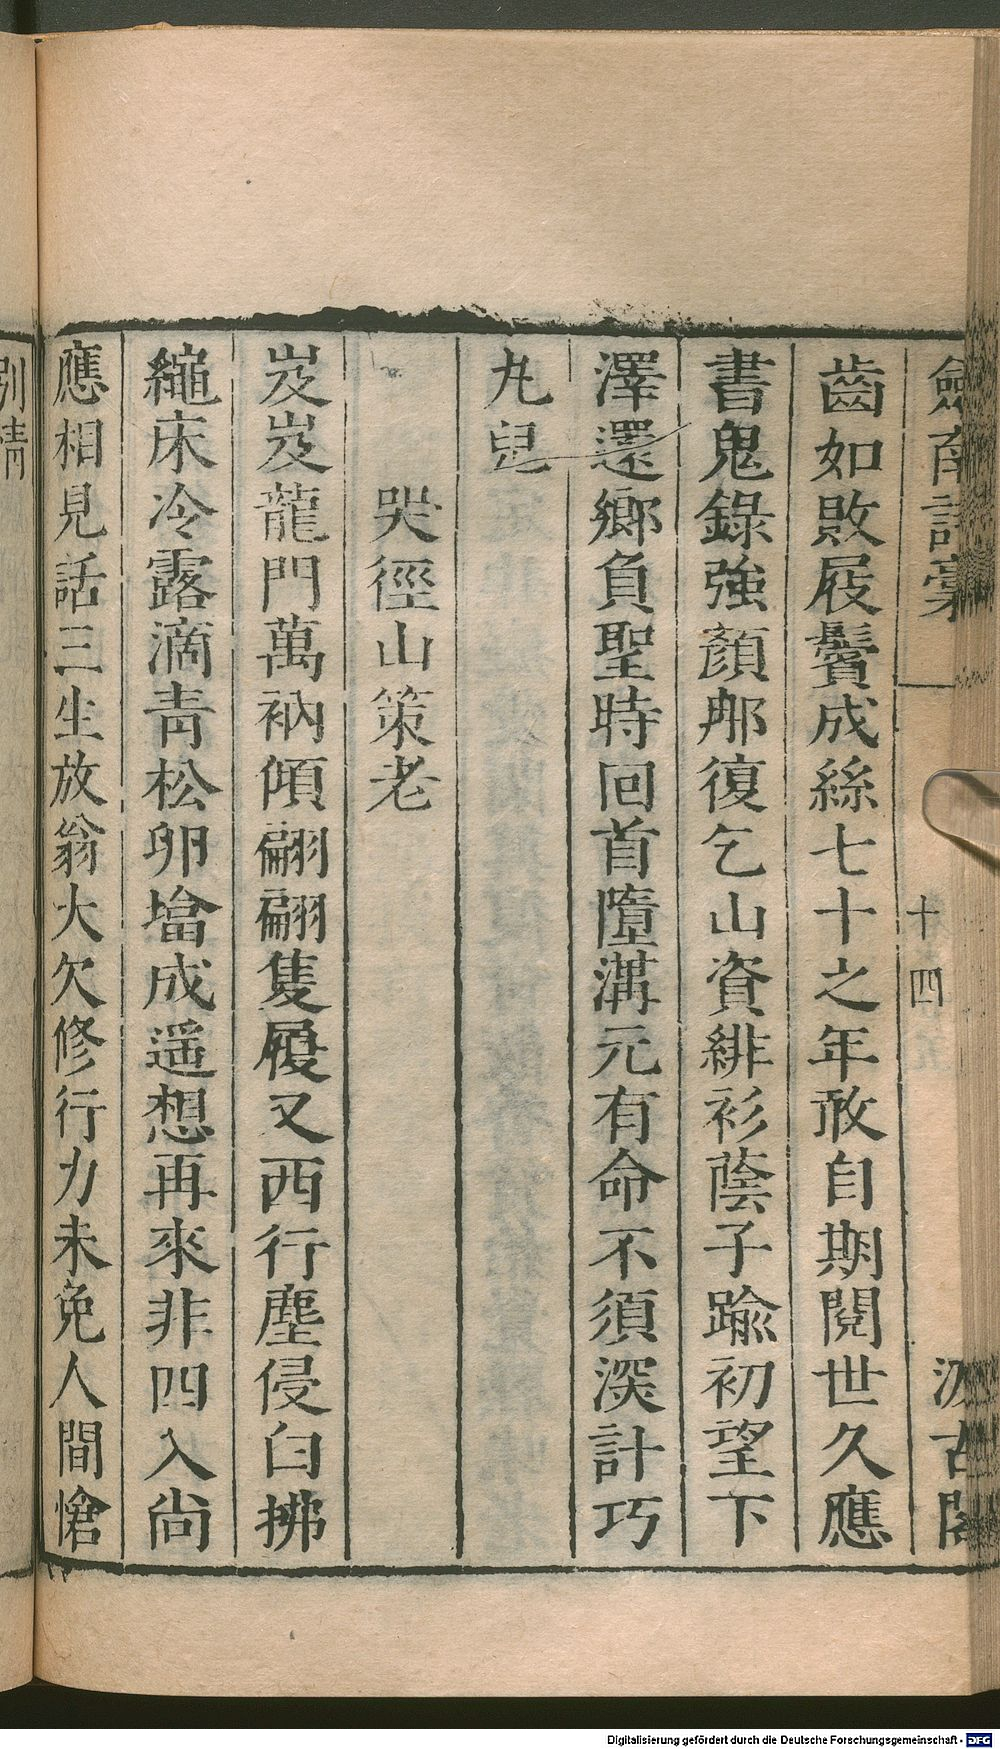 劍南詩稾
十四
汲古閣
齒如敗屐鬢成絲七十之年敢自期閱世久應
書鬼錄強顏那復乞山資緋衫蔭子踰初望下
澤還鄉負聖時回首墮溝元有命不須深計巧
丸兒
哭徑山策老
岌岌龍門萬衲傾翩翩隻履又西行塵侵白拂
繩床冷露滴青松卵塔成遥想再來非四入尚
應相見話三生放翁大欠修行力未免人間愴
別情
Digitalisierung gefördert durch die Deutsche Forschungsgemeinschaft - DFG